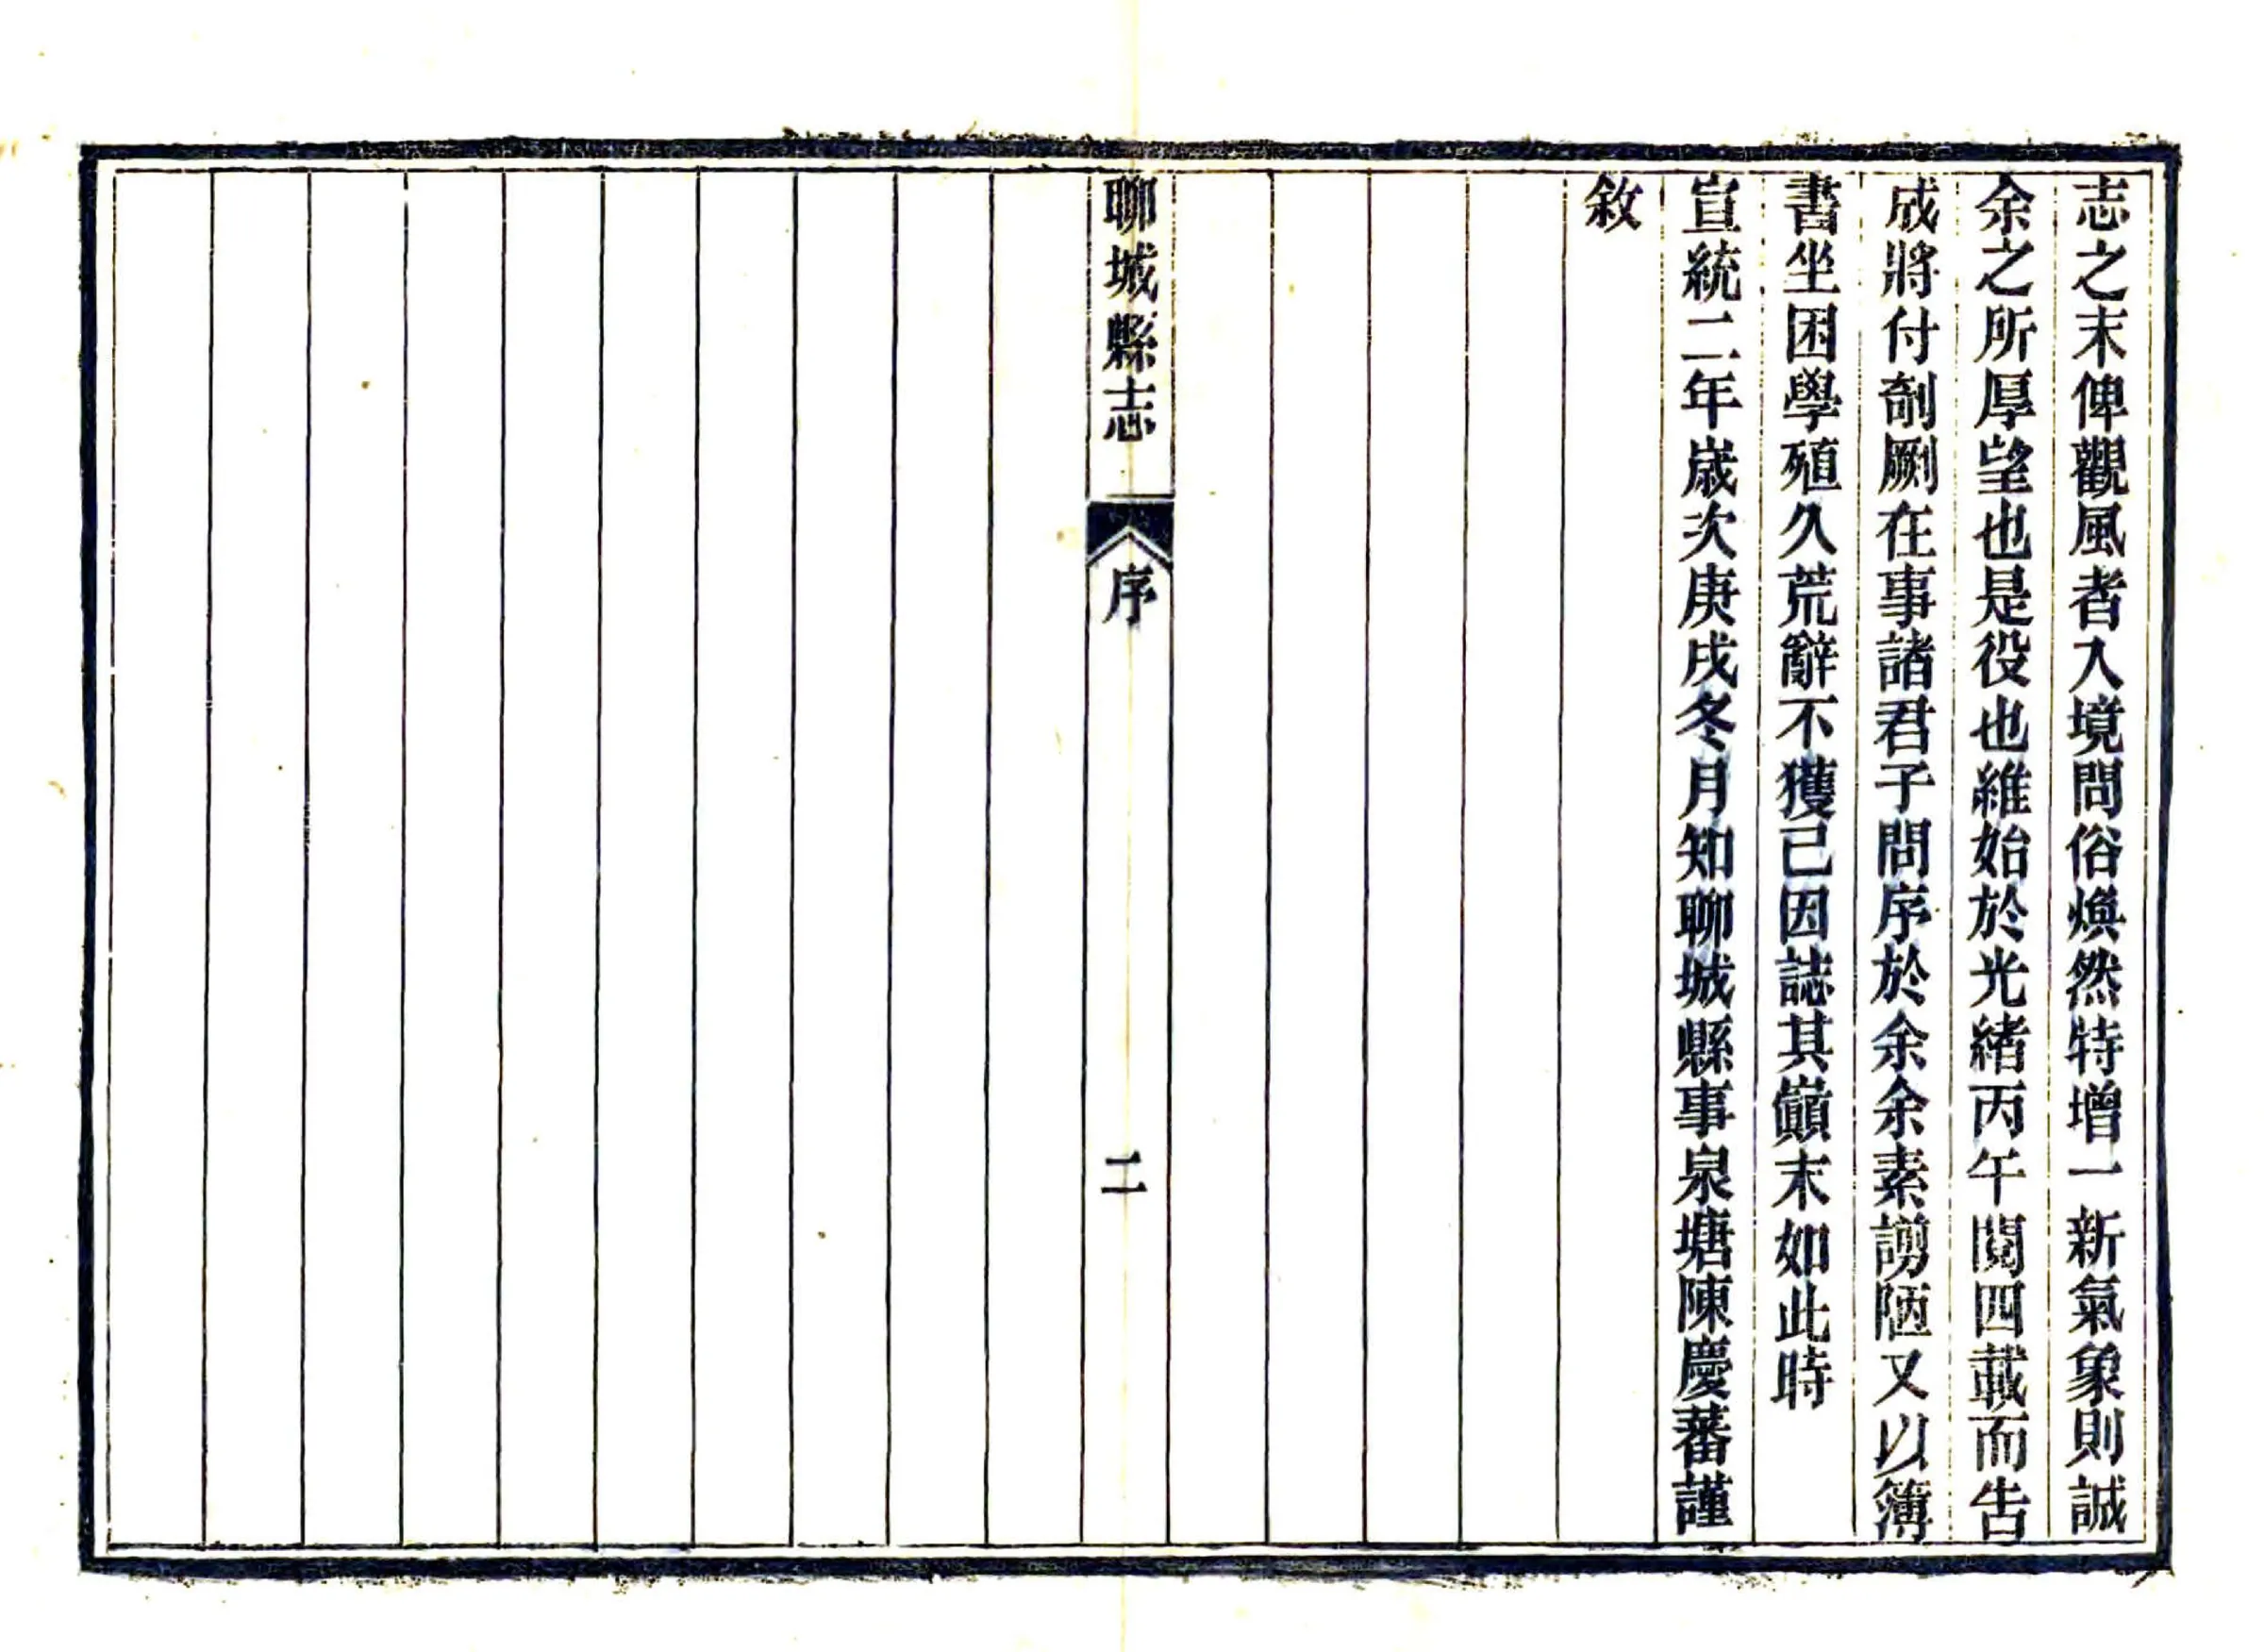 志之末俾觀風者入境問俗煥然特增一新氣象則誠
余之所厚望也是役也維始於光緒丙午閱四載而告
成將付剞劂在事諸君子問序於余余素謭陋又以簿
書坐困學殖久荒辭不獲已因誌其巔末如此時
宣統二年歲次庚戌冬月知聊城縣事泉塘陳慶蕃謹
敘
聊城縣志 序 二